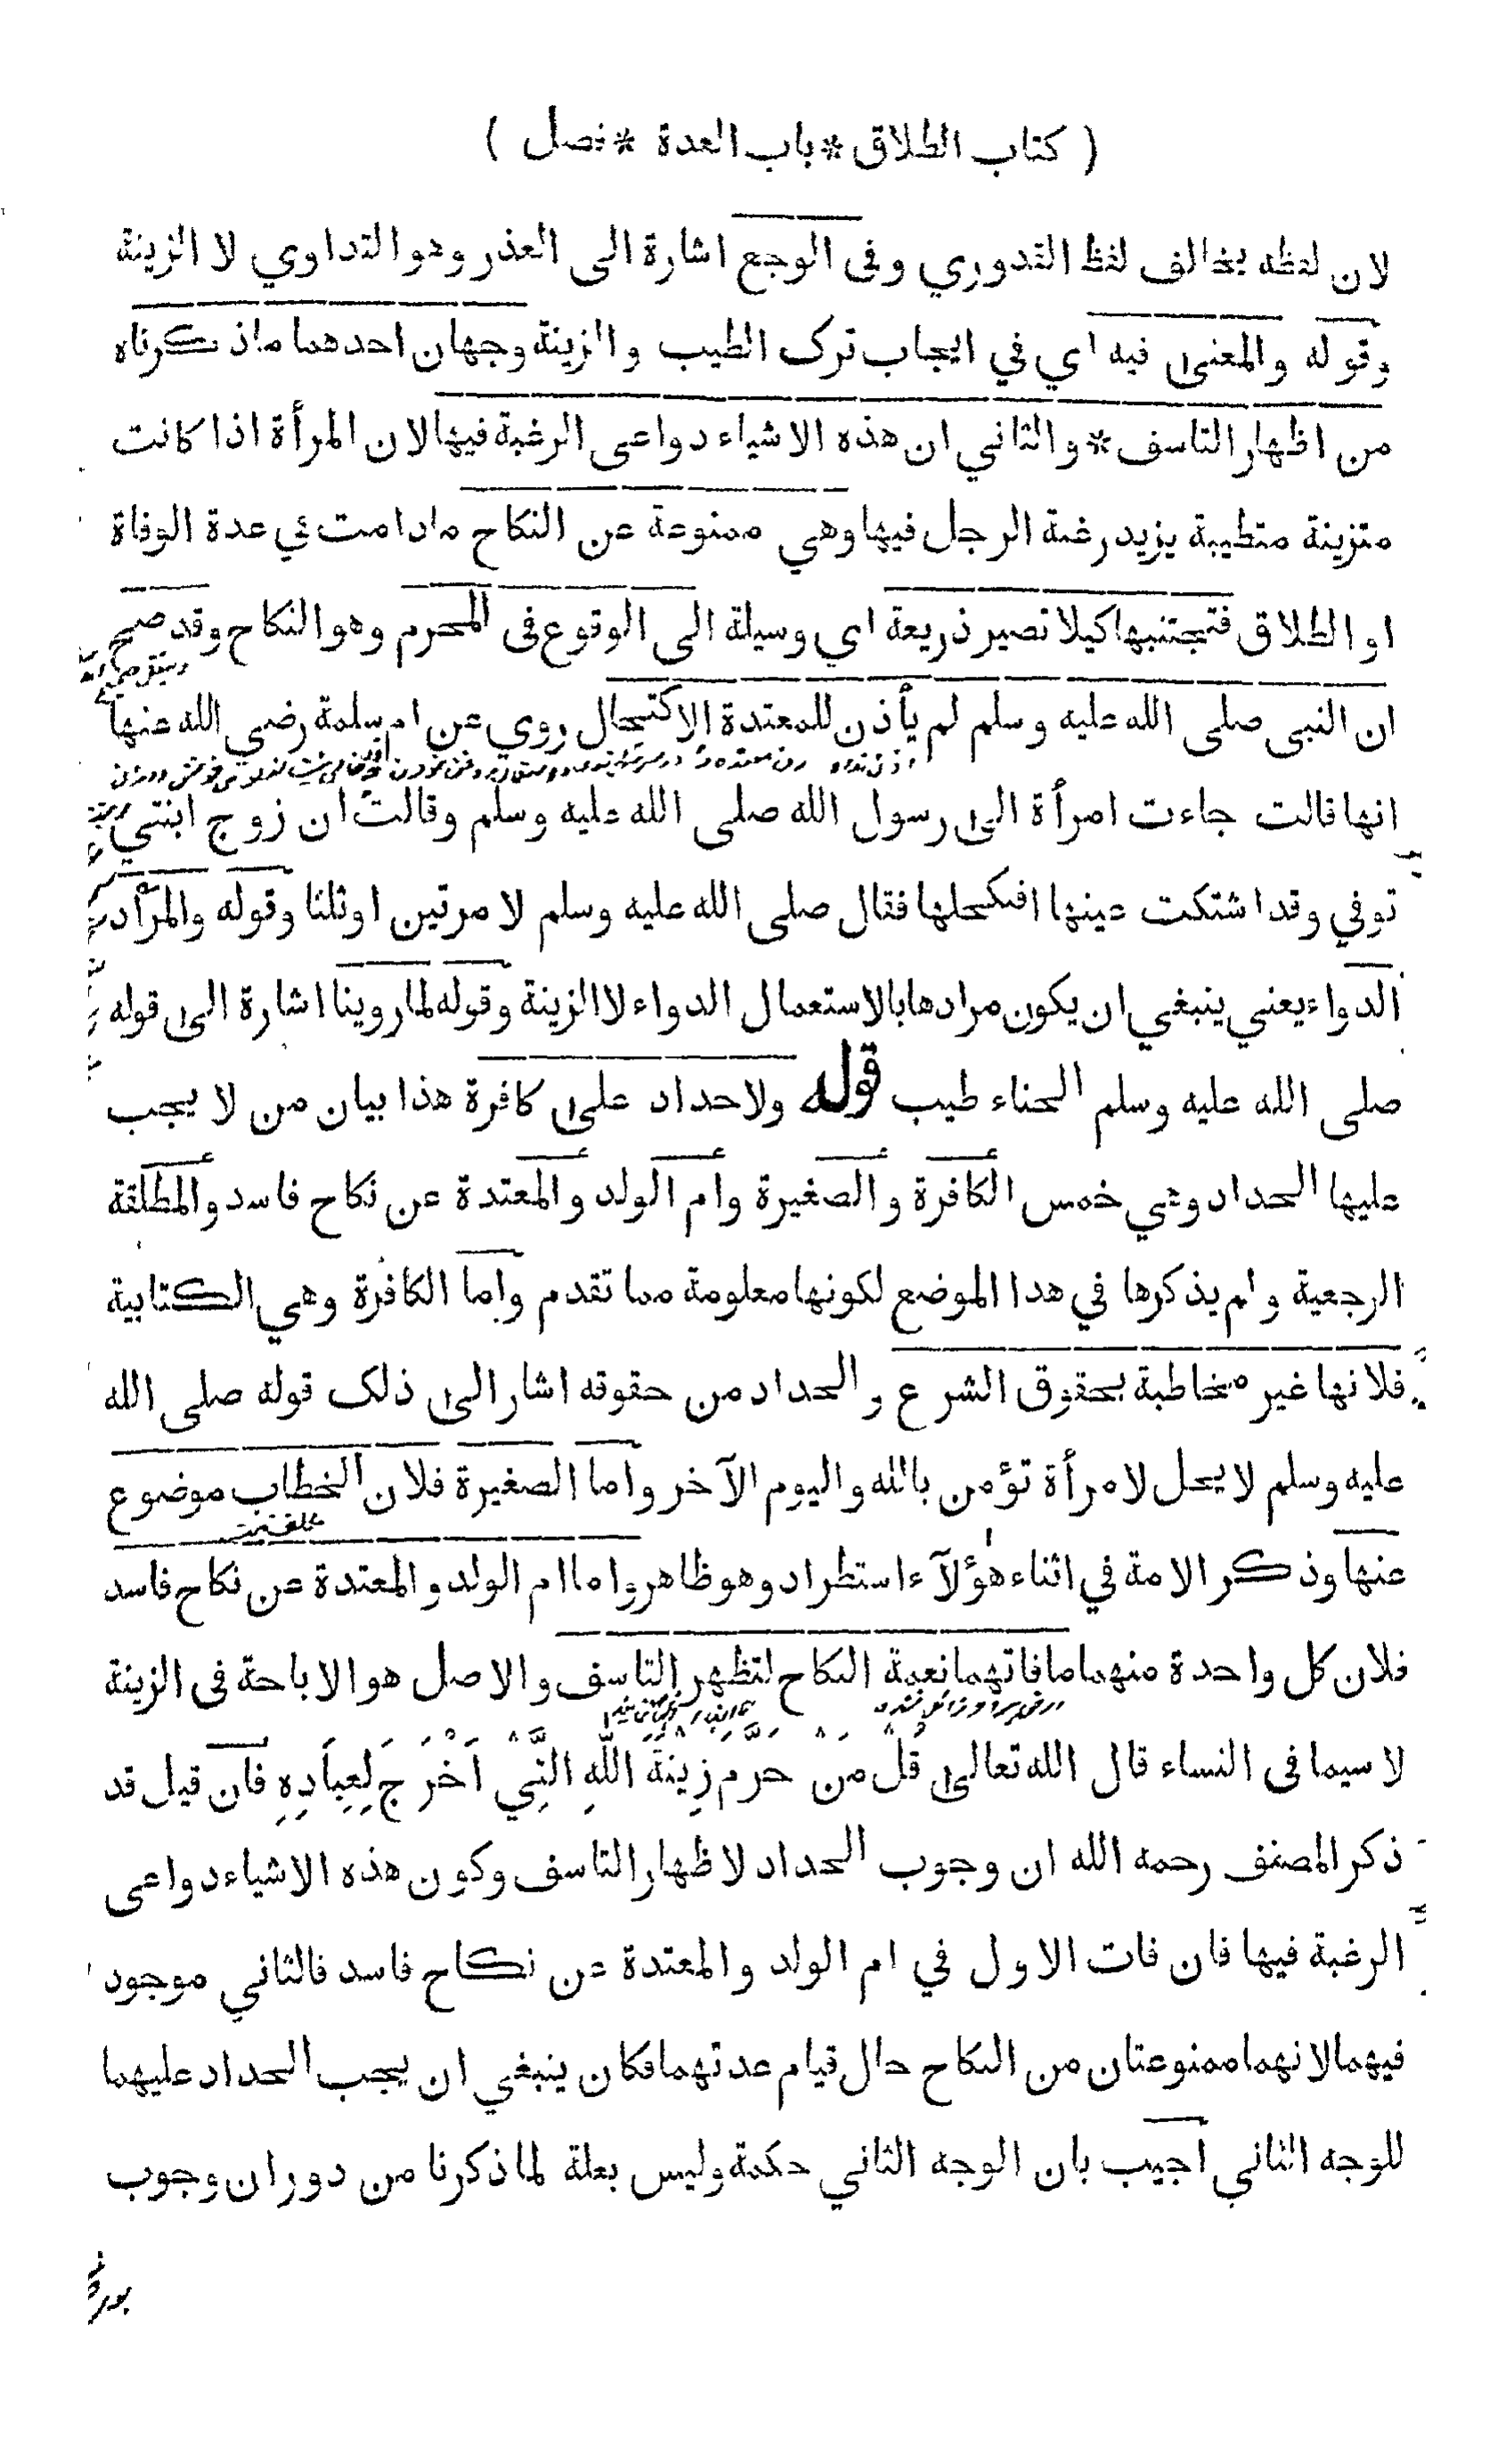 ( كتاب الطلاق * باب العدة * فصل )
لان لفظه يخالف لفظ القدوري وفى الوجع اشارة الى العذر وهو التداوي لا الزينة
وقوله والمعنى فيه اي في ايجاب ترك الطيب والزينة وجهان احدهما ماذكرناه
من اظهار التاسف * والثاني ان هذه الاشياء دواعى الرغبة فيها لان المرأة اذا كانت
متزينة متطيبة يزيد رغبة الرجل فيها وهي ممنوعة عن النكاح مادامت في عدة الوفاة
او الطلاق فتجتنبها كيلا تصير ذريعة اي وسيلة الى الوقوع فى المحرم وهو النكاح وقد صح
ان النبى صلى الله عليه وسلم لم يأذن للمعتدة الاكتحال روي عن ام سلمة رضي الله عنها
انها قالت جاءت امرأة الى رسول الله صلى الله عليه وسلم وقالت ان زوج ابنتي
توفي وقد اشتكت عينها افنكحلها فقال صلى الله عليه وسلم لا مرتين او ثلثا وقوله والمرأد
الدواء يعني ينبغي ان يكون مرادها بالاستعمال الدواء لا الزينة وقوله لما روينا اشارة الى قوله
صلى الله عليه وسلم الحناء طيب قوله ولاحداد على كافرة هذا بيان من لا يجب
عليها الحداد وهي خمس الكافرة والصغيرة وام الولد والمعتدة عن نكاح فاسد والمطلقة
الرجعية ولم يذكرها في هذا الموضع لكونها معلومة مما تقدم واما الكافرة وهي الكتابية
فلانها غير مخاطبة بحقوق الشرع والحداد من حقوقه اشار الى ذلك قوله صلى الله
عليه وسلم لا يحل لامرأة تؤمن بالله واليوم الآخر واما الصغيرة فلان الخطاب موضوع
عنها وذكر الامة في اثناء هؤلآء استطراد وهو ظاهر واما ام الولد والمعتدة عن نكاح فاسد
فلان كل واحدة منهما مافاتهما نعمة النكاح لتظهر التاسف والاصل هو الاباحة فى الزينة
لا سيما فى النساء قال الله تعالى قُلْ مَنْ حَرَّمَ زِينَةَ اللّٰهِ الَّتِيْ اَخْرَجَ لِعِبَادِهِ فان قيل قد
ذكر المصنف رحمه الله ان وجوب الحداد لاظهار التاسف وكون هذه الاشياء دواعى
الرغبة فيها فان فات الاول في ام الولد والمعتدة عن نكاح فاسد فالثاني موجود
فيهما لانهما ممنوعتان من النكاح حال قيام عدتهما فكان ينبغي ان يجب الحداد عليهما
للوجه الثاني اجيب بان الوجه الثاني حكمة وليس بعلة لما ذكرنا من دوران وجوب